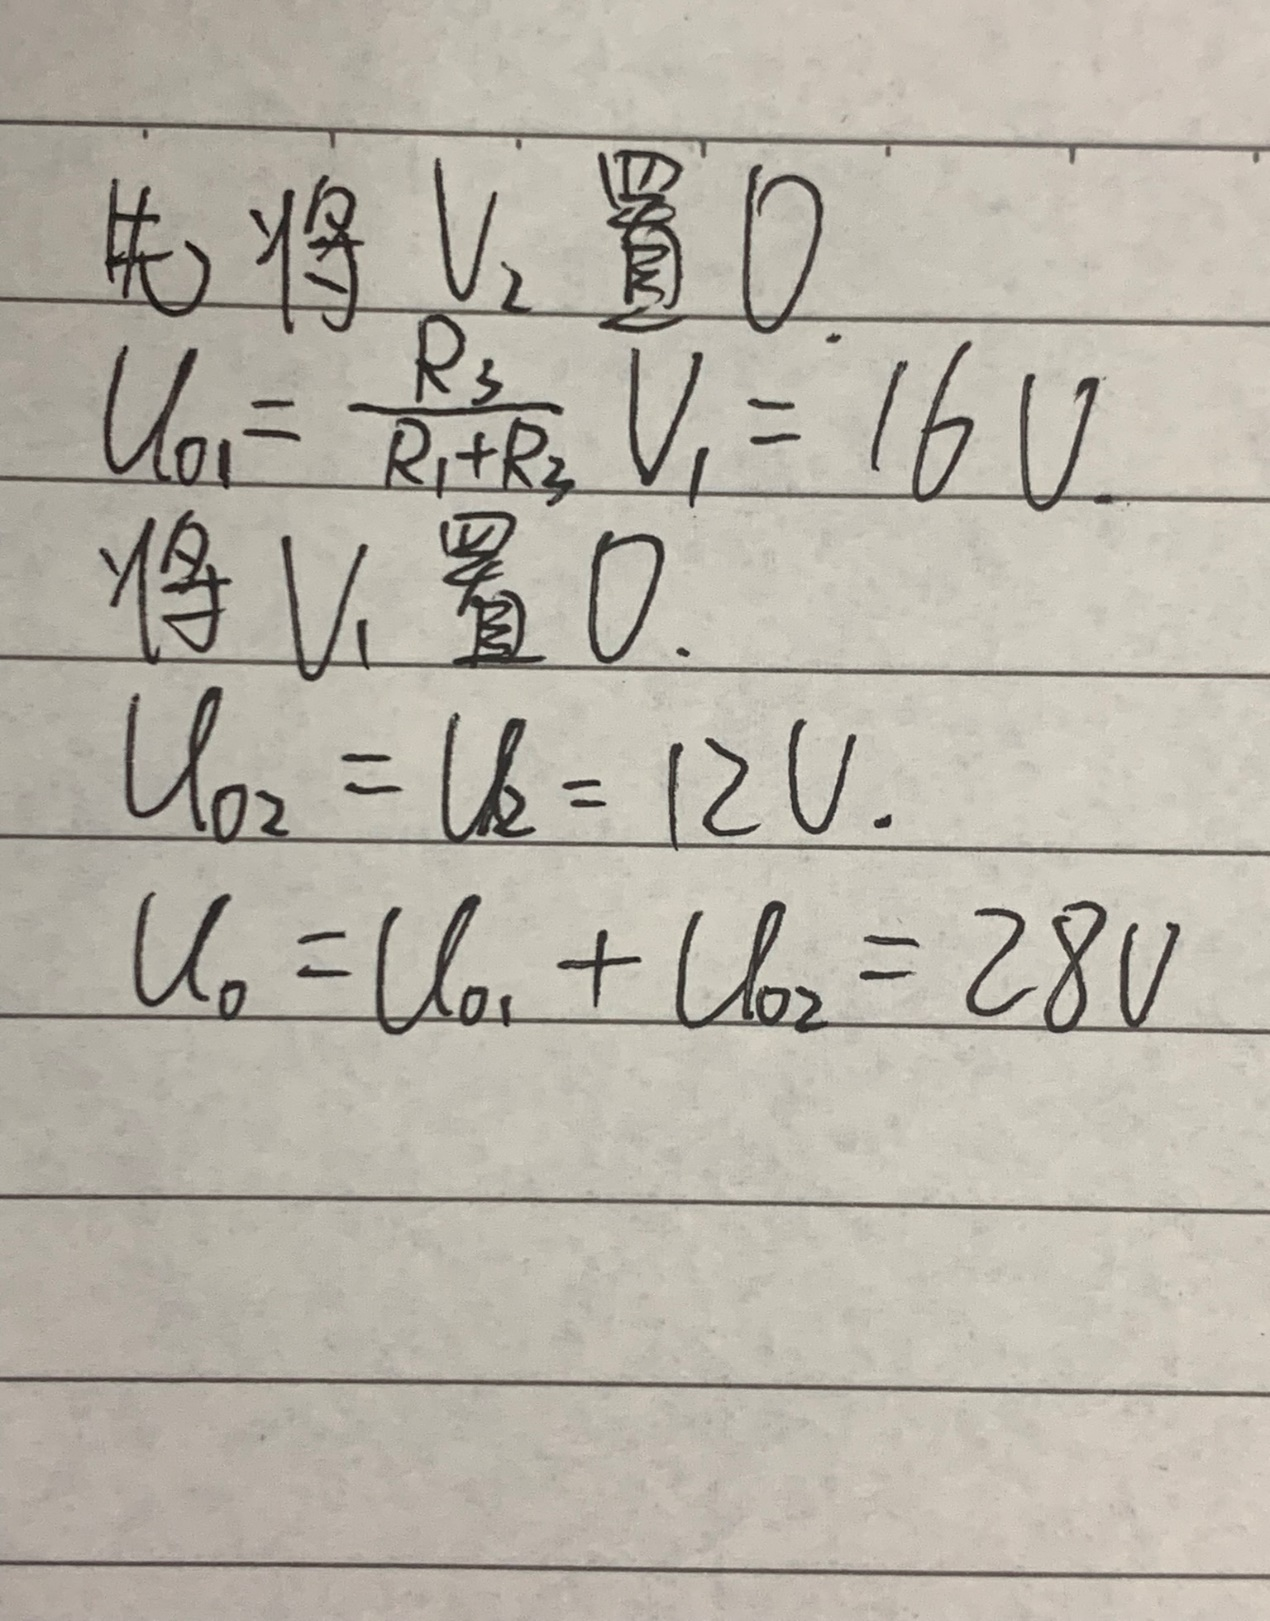 先将 V₂ 置 0.
U₀₁ = R₃/(R₁+R₃) V₁ = 16V.
将 V₁ 置 0.
U₀₂ = U₂ = 12V.
U₀ = U₀₁ + U₀₂ = 28V